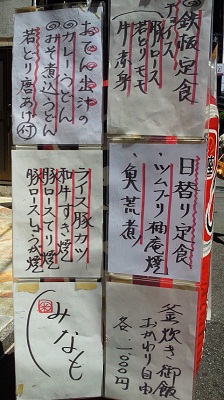 ◎鉄板定食
チョイス
豚ロース
若とりモモ
牛赤身
おでん出汁の
◎カレーうどん
◎みそ煮込うどん
若とり唐あげ付
日替り定食
・ツムブリ柚庵焼
・魚荒煮
ライス豚カツ
和牛すき焼
豚ロースてり焼
豚ロースしょうが焼
釜炊き御飯
おかわり自由
各、一〇〇〇円
みなも